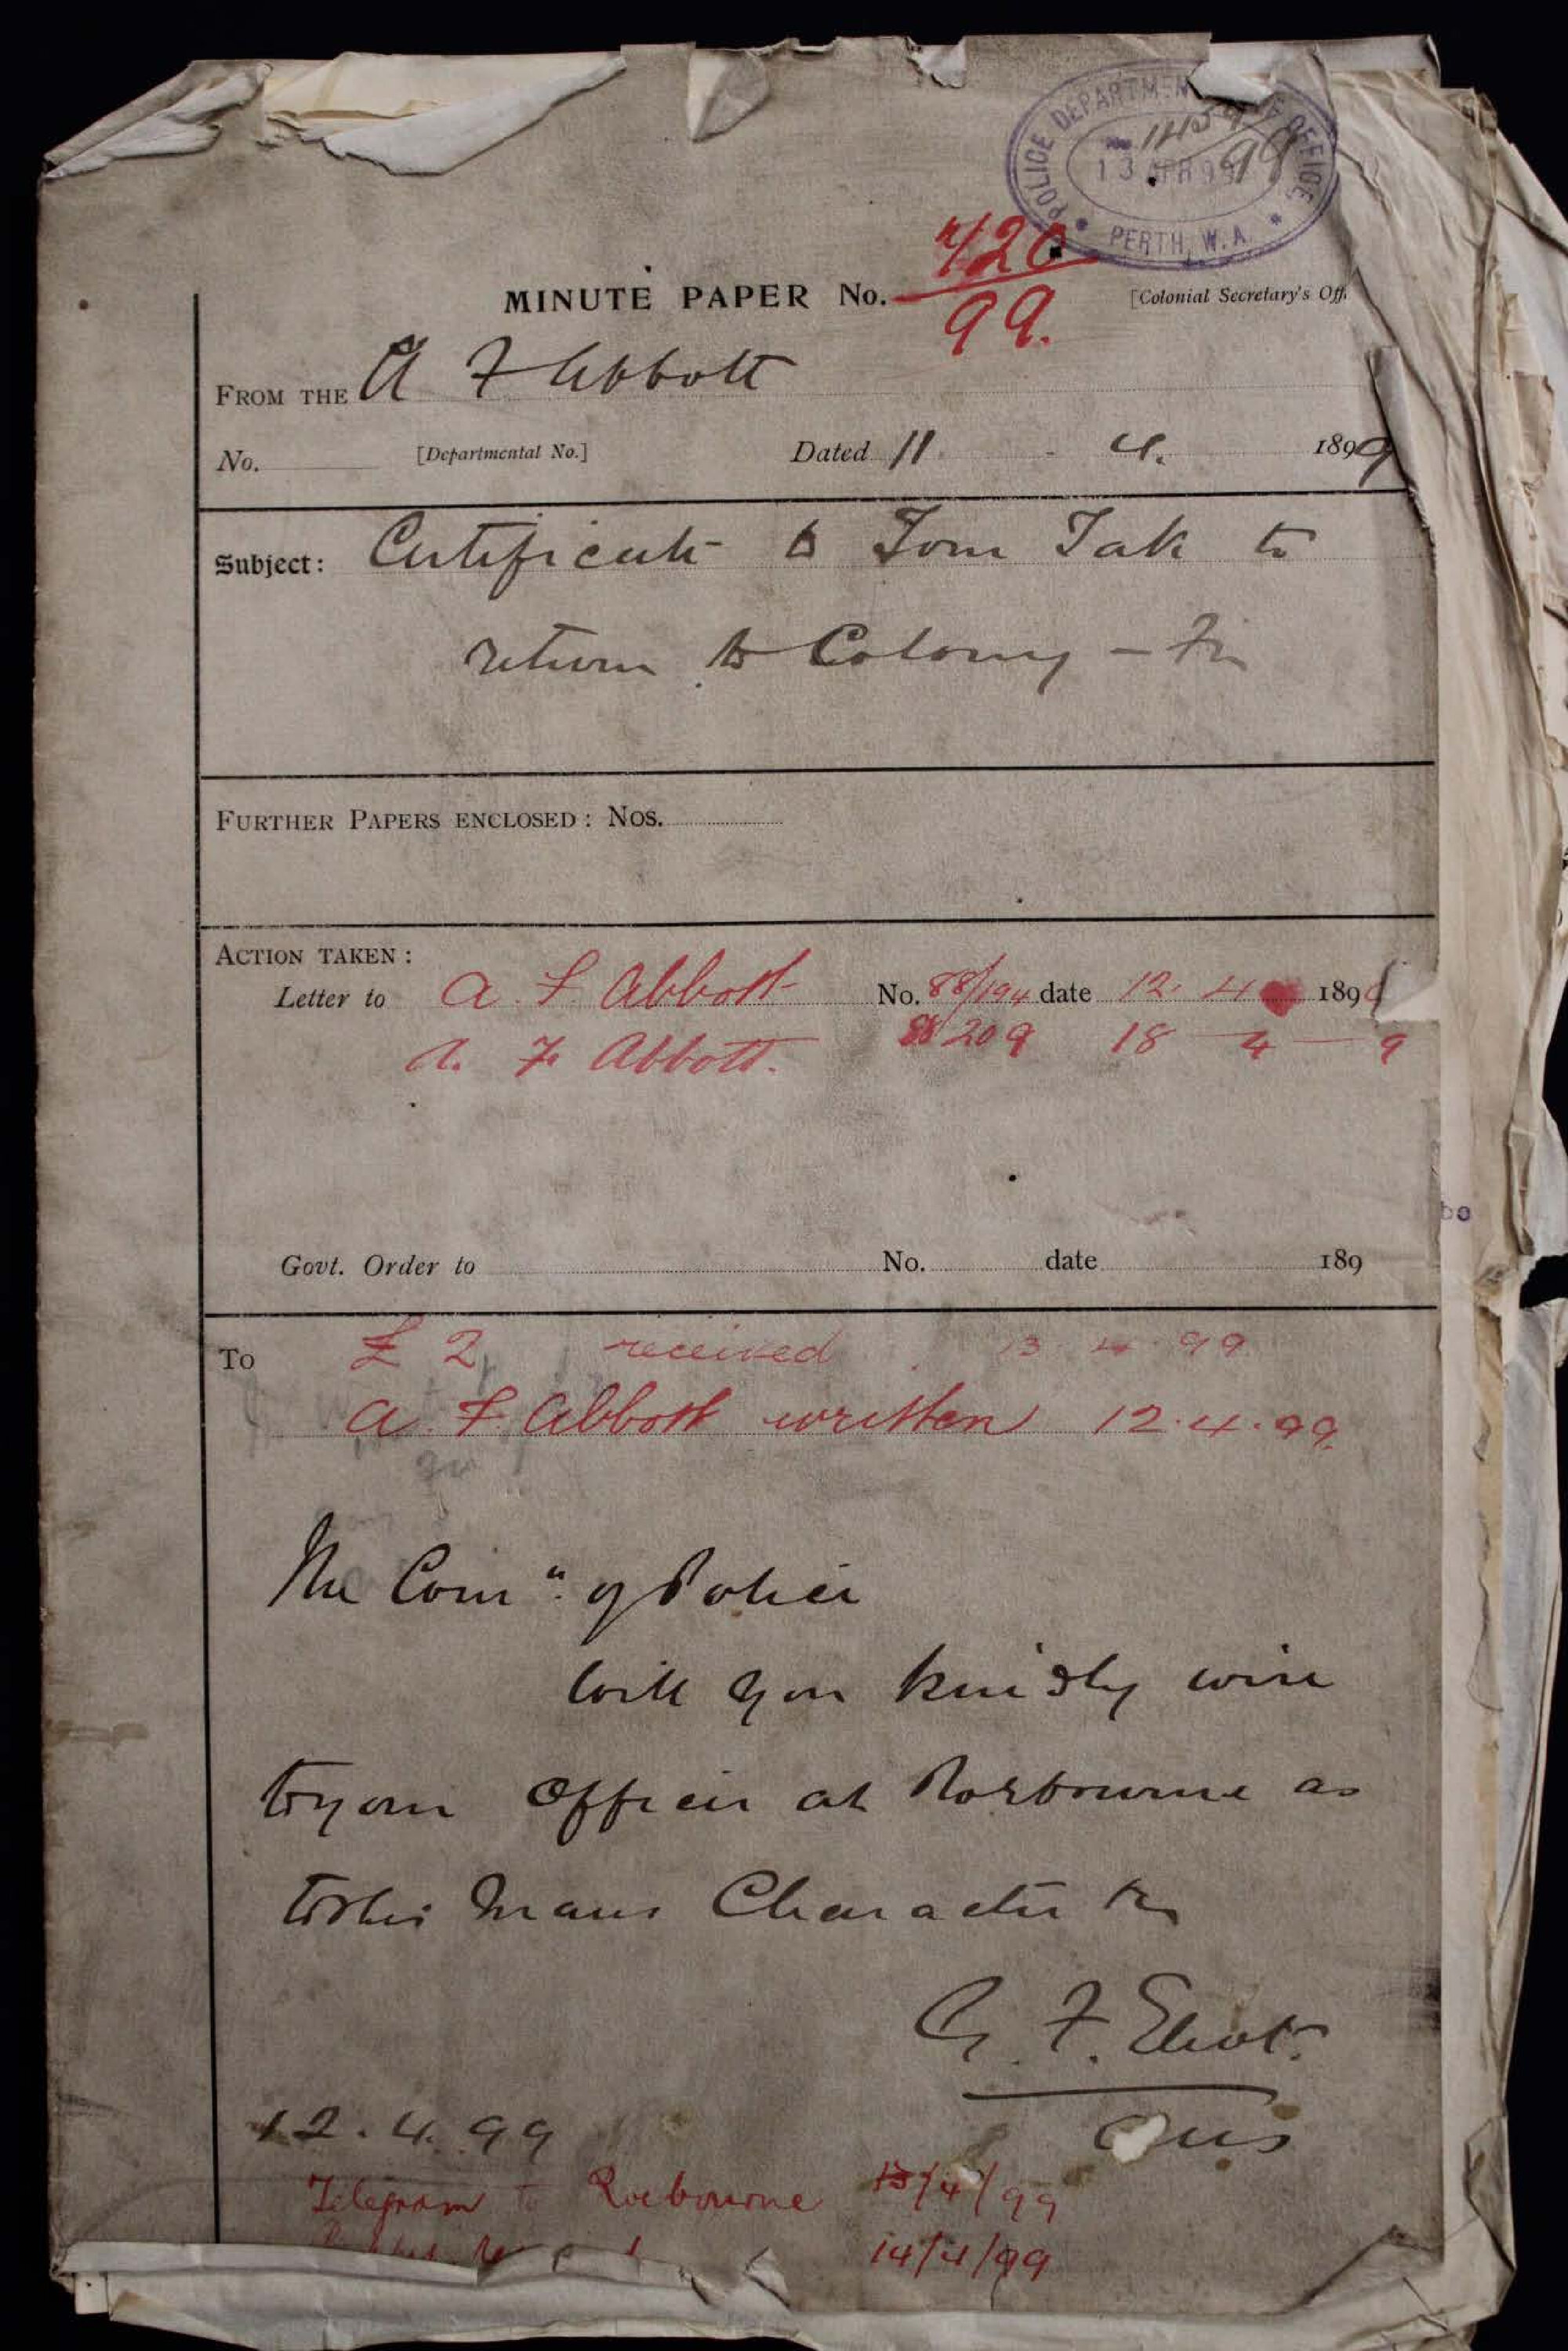 POLICE DEPARTMEN OFFICE
13 APR 99
PERTH, W.A.
420
MINUTE PAPER No. 99. [Colonial Secretary's Off.
FROM THE A F Abbott
No. [Departmental No.] Dated 11 . 4. 1899
Subject: Certificate to Tom Tak to
return to Colony -
FURTHER PAPERS ENCLOSED: Nos.
ACTION TAKEN:
Letter to A. F. Abbott No. 88/194 date 12. 4 189
A. F. Abbott. 209 18 - 4 - 9
Govt. Order to No. date 189
To £2 received 13.4.99
A. F. Abbott written 12.4.99.
The Comr. of Police
Will you kindly wire
to your Officer at Roebourne as
to this mans Character
G. F. Eliot.
12.4.99
Telegram to Roebourne 13/4/99
14/4/99